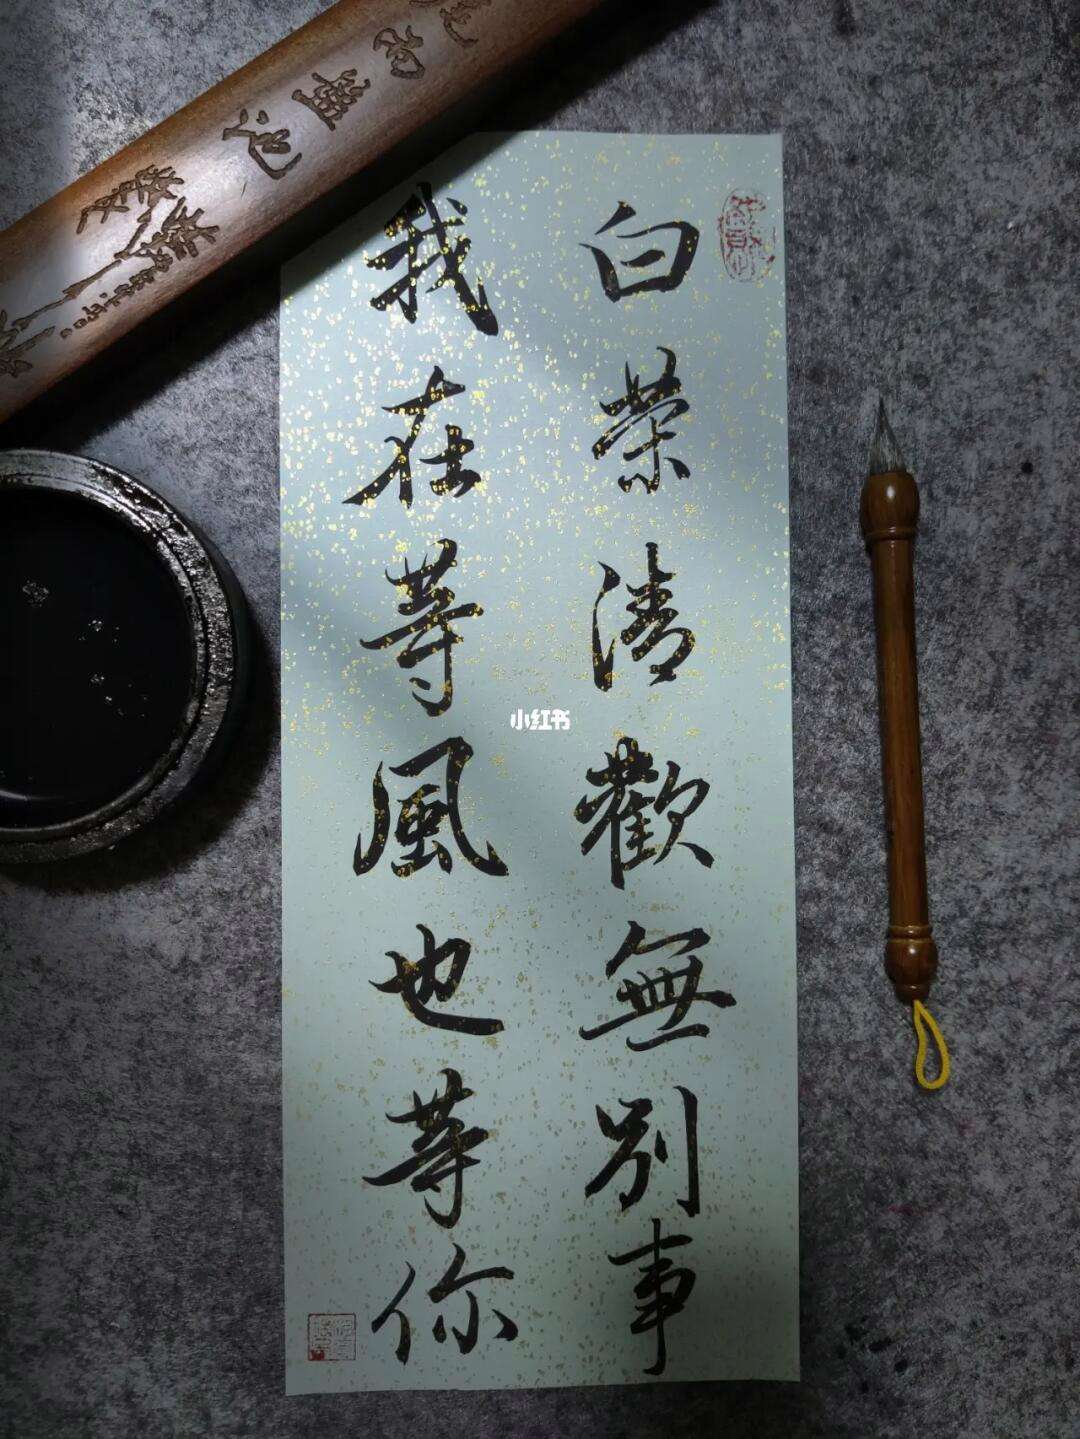 白茶清歡無別事
我在等風也等你
小红书